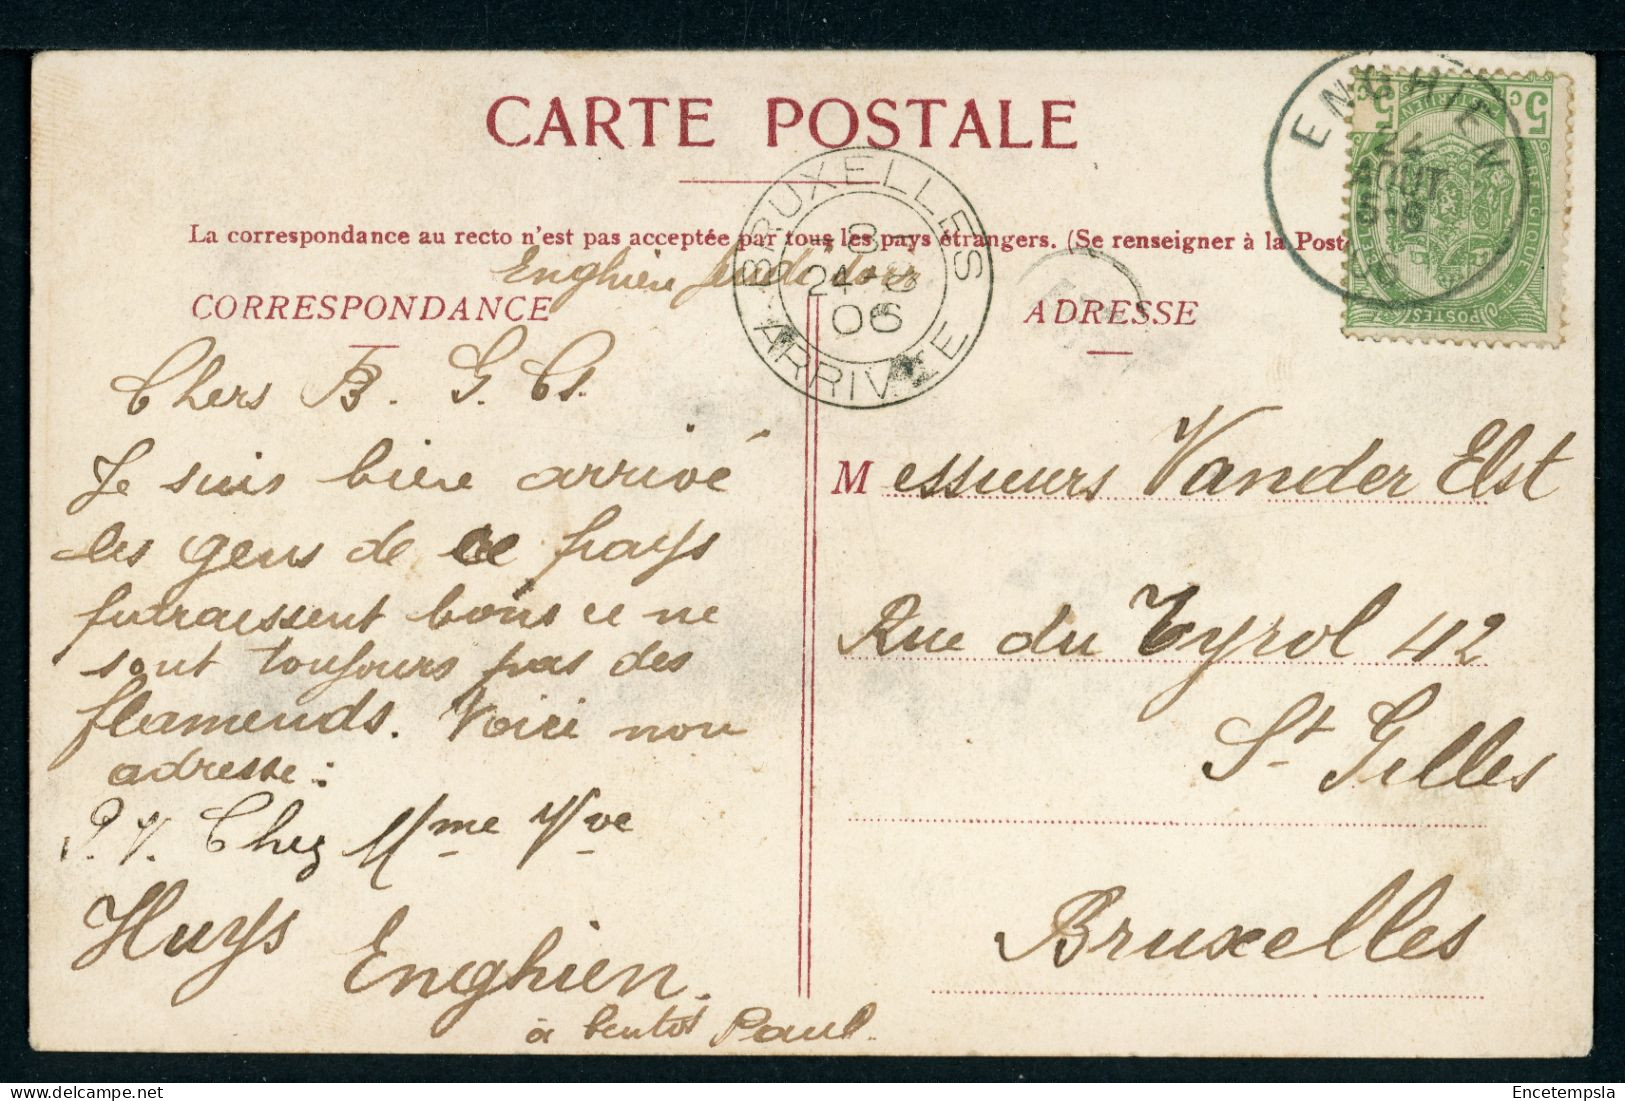 CARTE POSTALE
La correspondance au recto n'est pas acceptée par tous les pays étrangers. (Se renseigner à la Poste
Enghien jeudi soir
CORRESPONDANCE
Chers B. G. Cs.
Je suis bien arrivé
les gens de ce pays
paraissent bons ce ne
sont toujours pas des
flamends. Voici mon
adresse:
P. V. Chez Mme Vve
Huys Enghien.
à bientôt Paul.
BRUXELLES
8
24-8
06
ARRIVÉE
ENGHIEN
24
AOUT
06
5 C
5 C
POSTES
BELGIQUE
ADRESSE
Messieurs Vander Elst
Rue du Tyrol 42
St Gilles
Bruxelles
Encetempsla